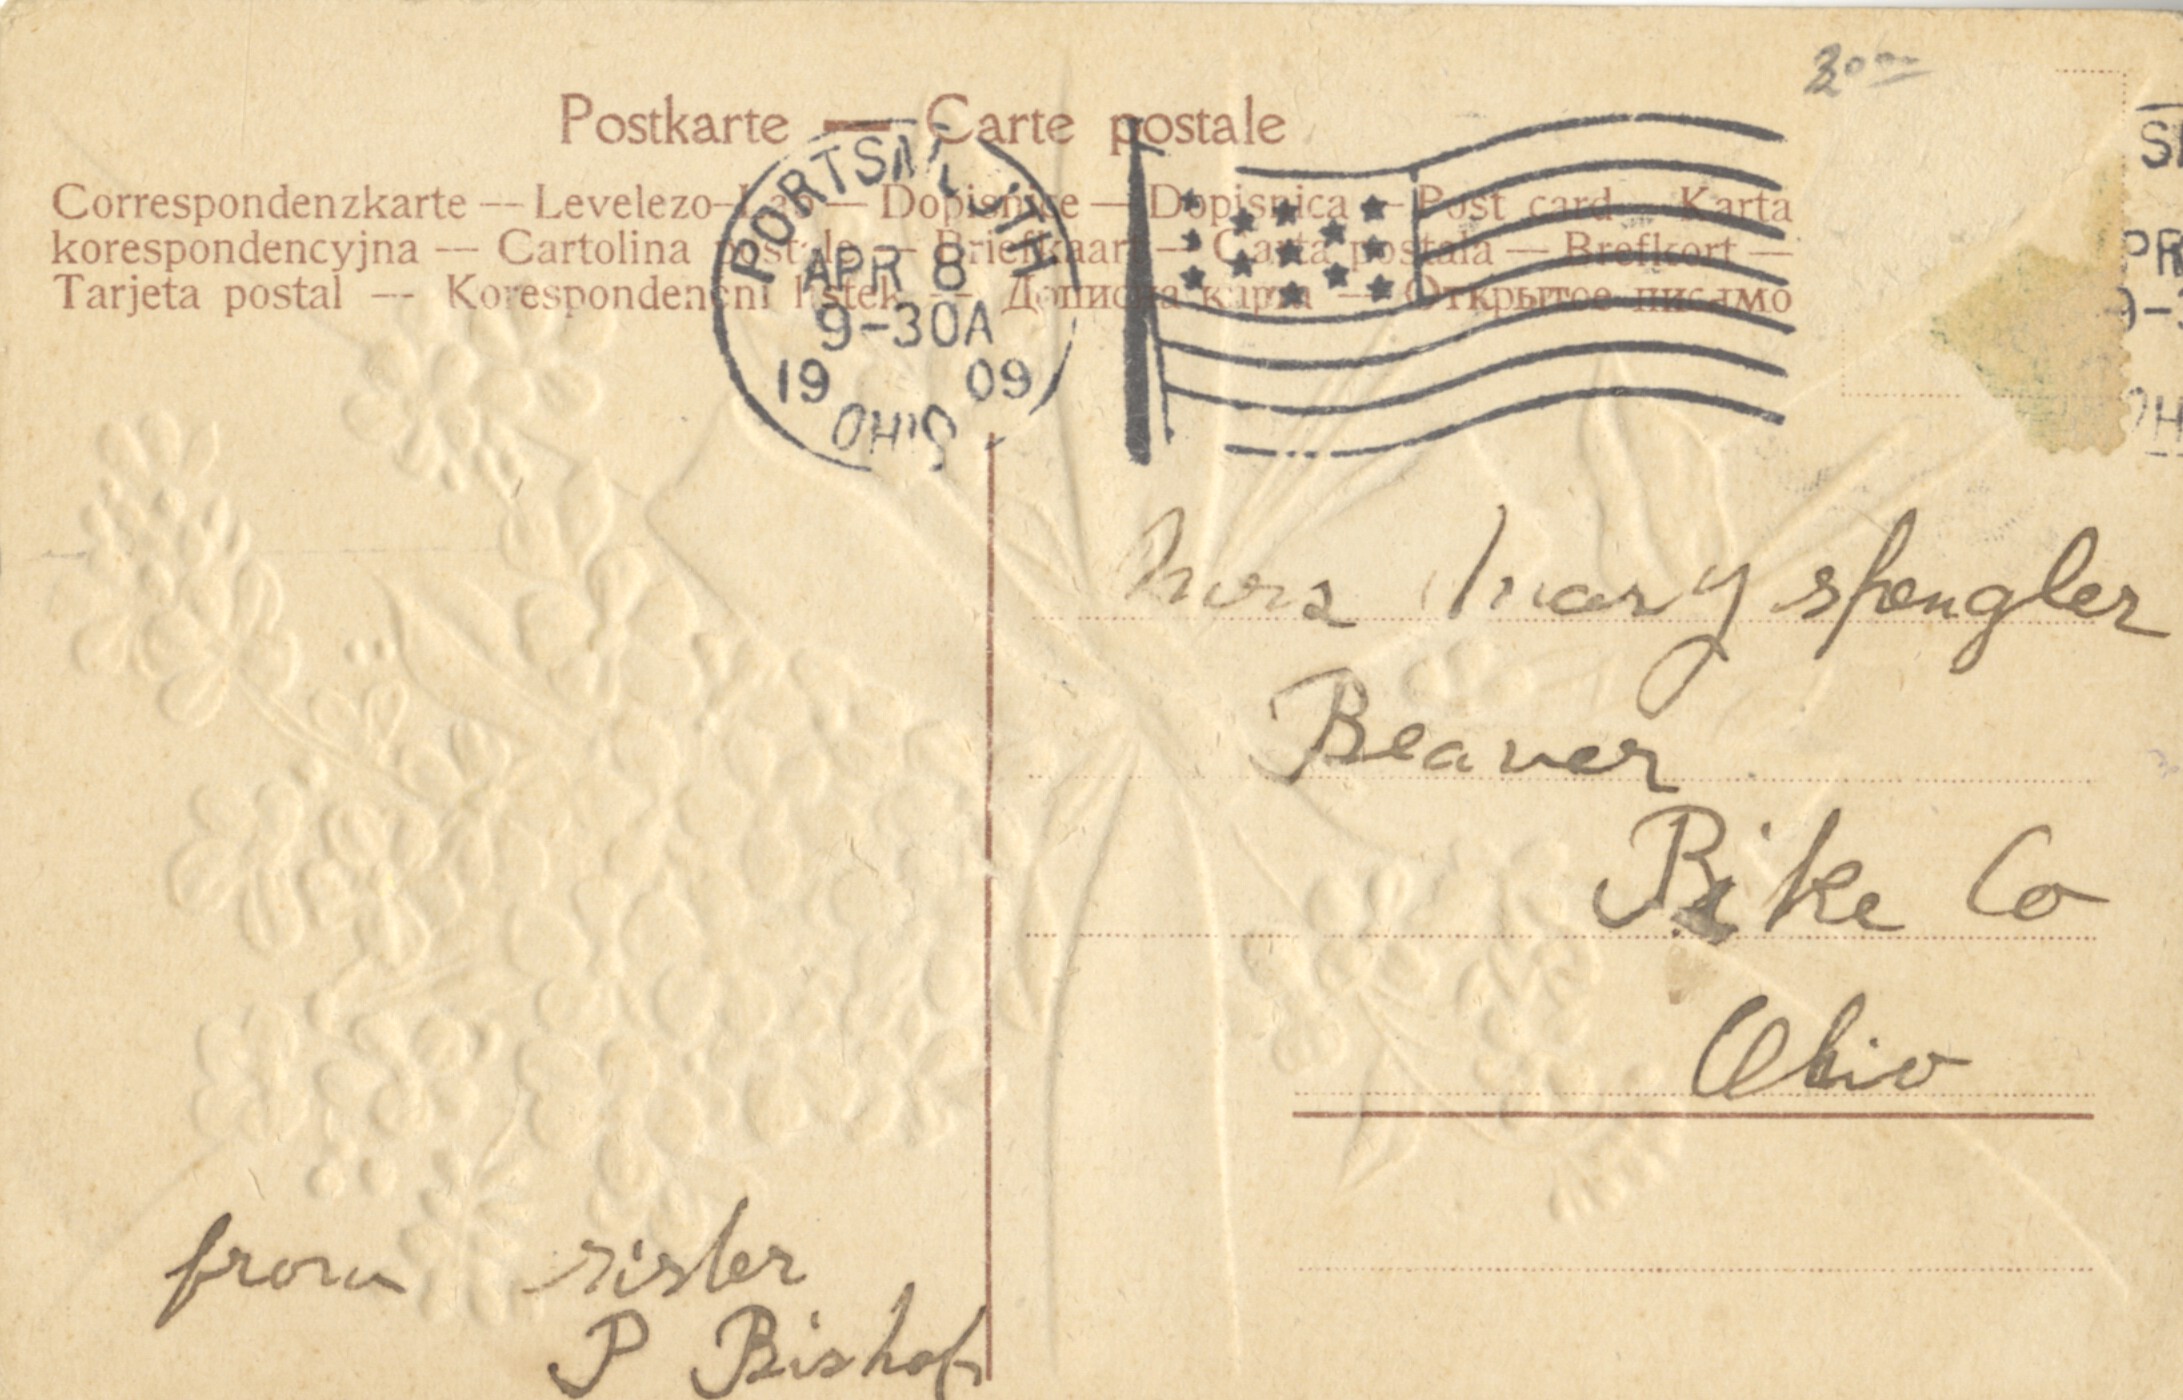 Postkarte — Carte postale
Correspondenzkarte — Levelezo- — Dopisnice — Dopisnica — Post card — Karta
korespondencyjna — Cartolina postale — Briefkaart — Carta postala — Brefkort —
Tarjeta postal — Korespondencni listek — Дописна карта — Открытое письмо
PORTSMOUTH
APR 8
9-30A
19 09
OHIO
Mrs Mary spengler
Beaver
Pike Co
Ohio
from sister
P Bishop